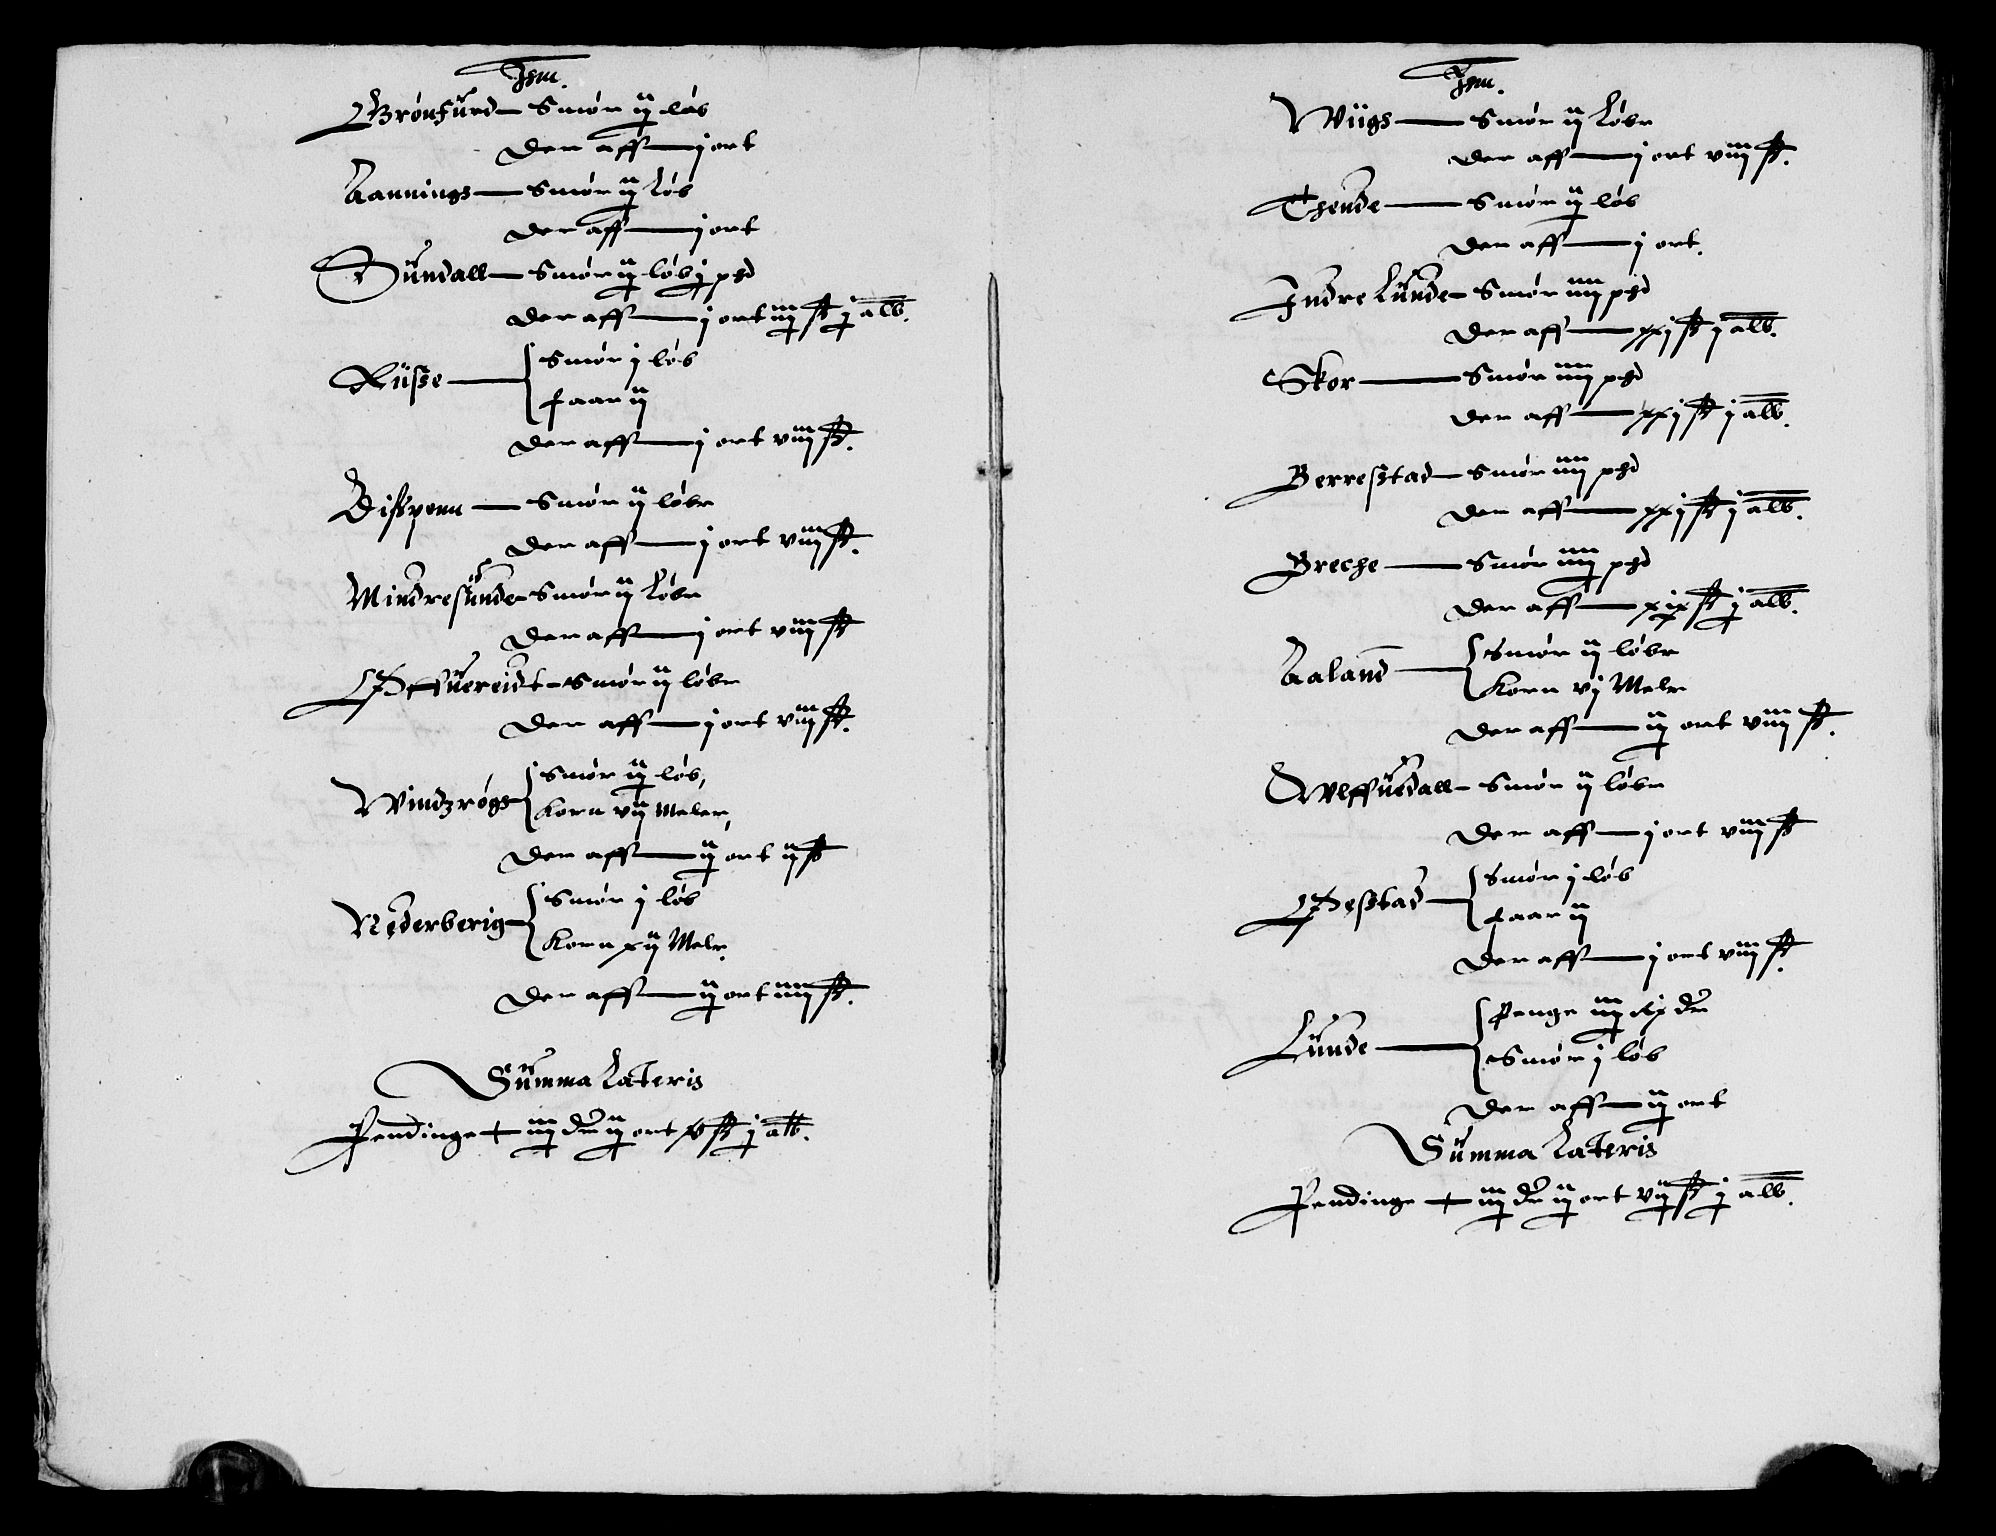 Jtem.
Brønsund — Smør ij løb
Der aff — j ort
Aannings — Smør ij Løb
Der aff — j ort
Sundall — Smør ij løb j pd
Der aff — j ort iij ß j alb.
Russe — Smør j løb
faar ij
Der aff — j ort viij ß.
Dispenn — Smør ij løbr
Der aff — j ort viij ß.
Mindresunde — Smør ij Løbr
Der aff — j ort viij ß
Offuereidt — Smør ij løbr
Der aff — j ort viij ß.
Windzrøgs — Smør ij løb,
Korn vij Meler,
Der aff — ij ort ij ß
Nederberig — Smør j løb
Korn xij Melr.
Der aff — ij ort iiij ß.
Summa Lateris
Pendinge — iij dlr ij ort xv ß j alb.
Jtem.
Wiigs — Smør ij Løbr
Der aff — j ort viij ß.
Thende — Smør ij løb
Der aff — j ort.
Jndre Lunde — Smør iiij pd
Der aff — xxj ß j alb.
Skor — Smør iiij pd
Der aff — xxj ß j alb.
Berrestad — Smør iiij pd
Der aff — xxj ß j alb.
Breche — Smør iiij pd
Der aff — xix ß j alb.
Aaland — Smør ij løbr
Korn vj Melr
Der aff — ij ort viij ß.
Wlffuedall — Smør ij løbr
Der aff — j ort viij ß
Opestad — Smør j løb
faar ij
Der aff — j ort viij ß.
Lunde — Penge iij Rix dlr
Smør j løb
Der aff — ij ort
Summa Lateris
Pendinge — iij dlr ij ort vij ß j alb.